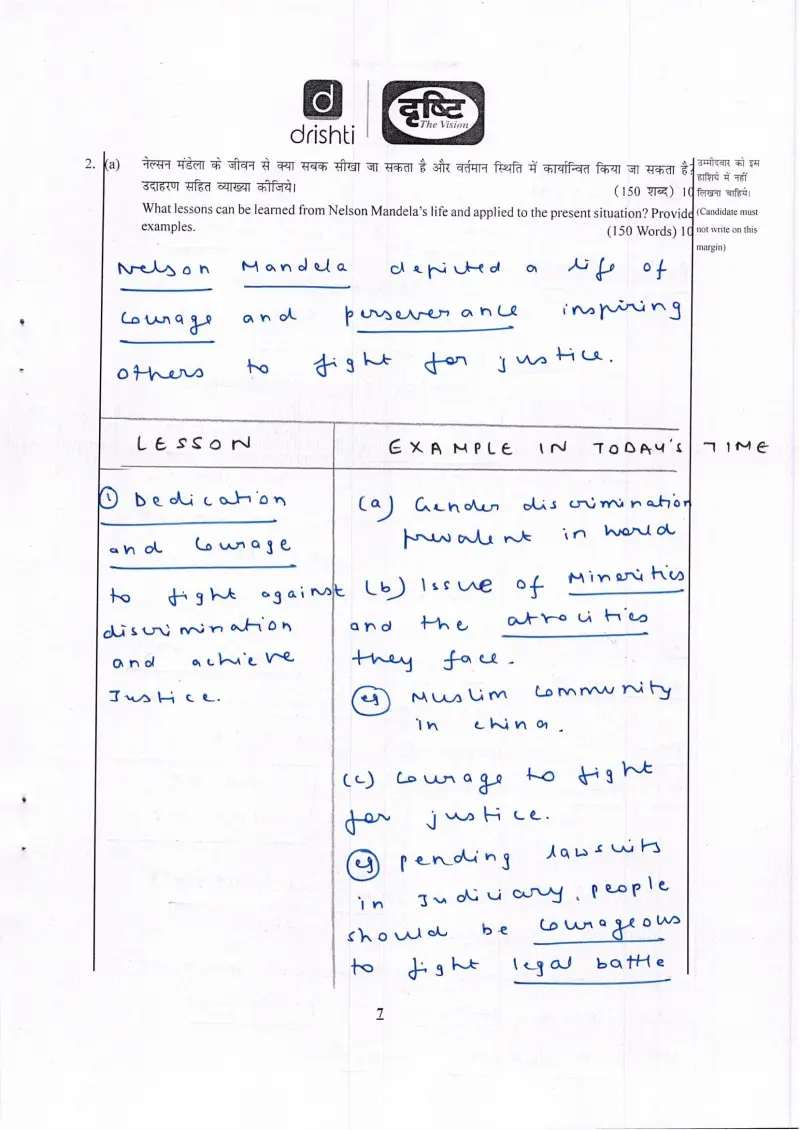 d
drishti
दृष्टि
The Vision
2. (a) नेल्सन मंडेला के जीवन से क्या सबक सीखा जा सकता है और वर्तमान स्थिति में कार्यान्वित किया जा सकता है?
उदाहरण सहित व्याख्या कीजिये।
(150 शब्द) 10
What lessons can be learned from Nelson Mandela's life and applied to the present situation? Provide
examples.
(150 Words) 10
उम्मीदवार को इस
हाशिये में नहीं
लिखना चाहिये।
(Candidate must
not write on this
margin)
Nelson Mandela depicted a life of
courage and perseverance inspiring
others to fight for justice.
LESSON
① Dedication
and Courage
to fight against
discrimination
and achieve
Justice.
EXAMPLE IN TODAY'S TIME
(a) Gender discrimination
prevalent in world
(b) Issue of Minorities
and the atrocities
they face.
eg Muslim Community
in china.
(c) Courage to fight
for justice.
eg pending lawsuits
in Judiciary, people
should be courageous
to fight legal battle
7